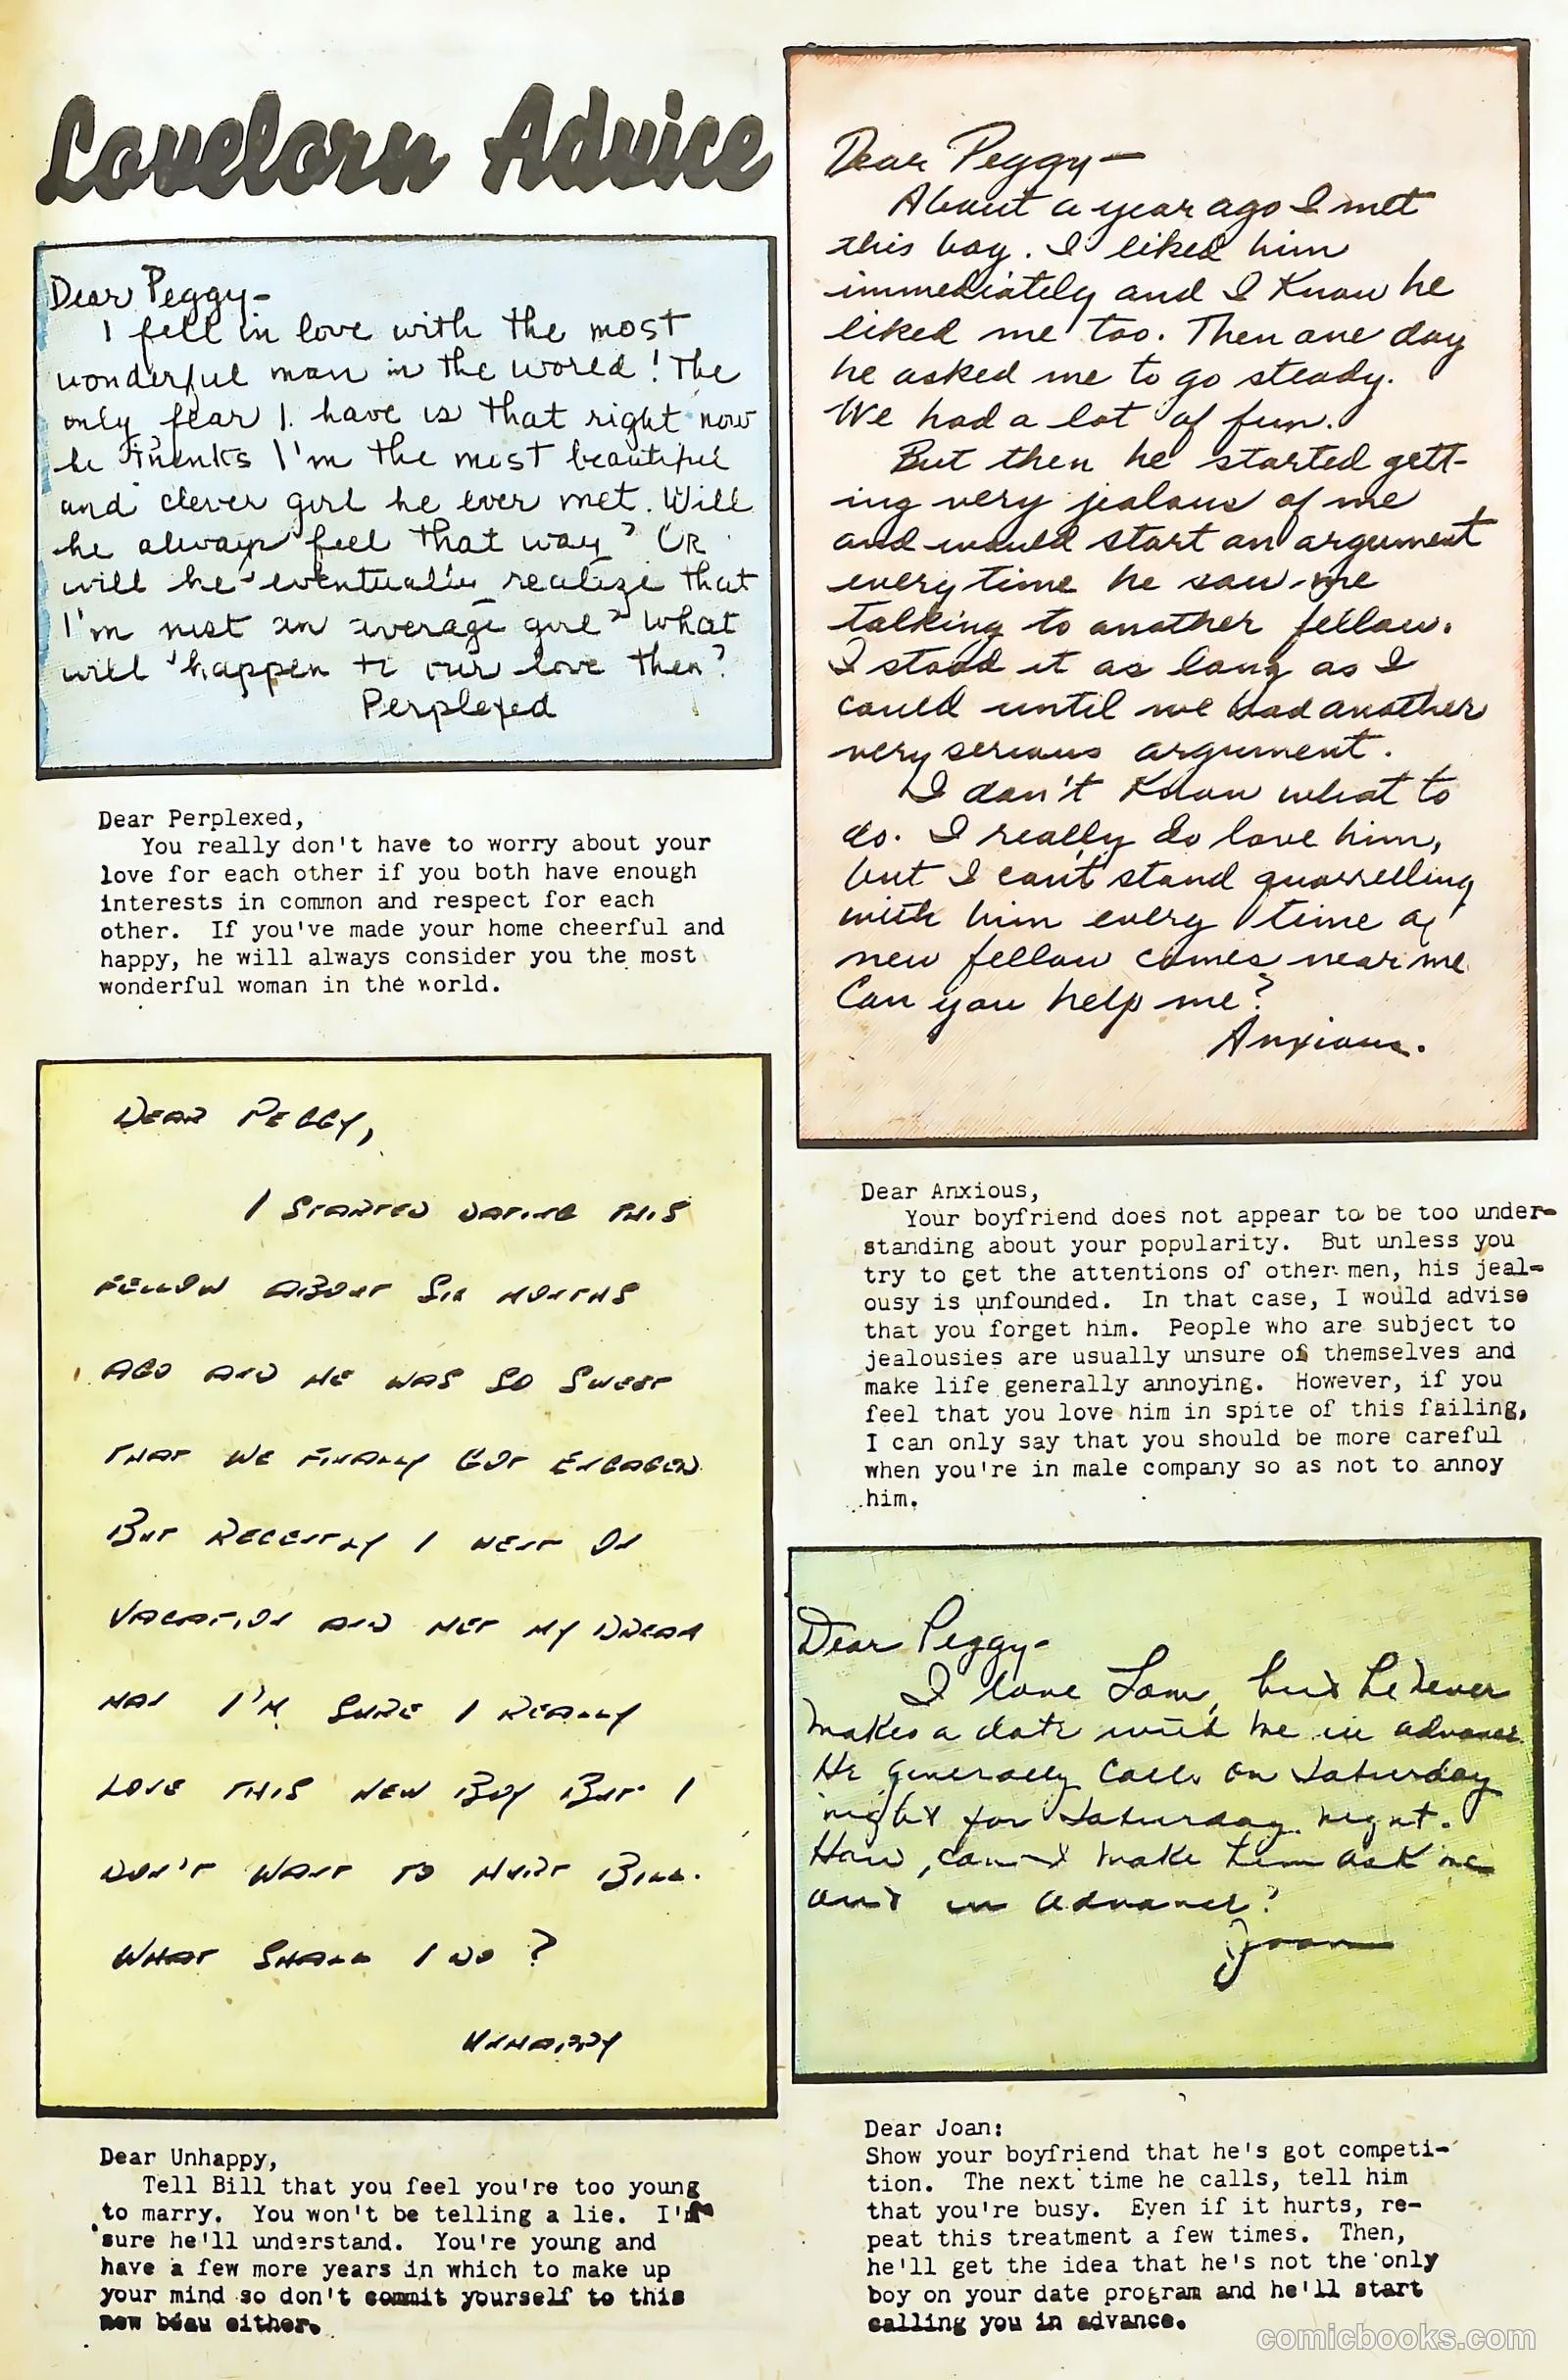 Lovelorn Advice
Dear Peggy-
I fell in love with the most
wonderful man in the world! The
only fear I have is that right now
he thinks I'm the most beautiful
and clever girl he ever met. Will
he always feel that way? OR
will he eventually realize that
I'm just an average girl? What
will happen to our love then?
Perplexed
Dear Perplexed,
You really don't have to worry about your
love for each other if you both have enough
interests in common and respect for each
other. If you've made your home cheerful and
happy, he will always consider you the most
wonderful woman in the world.
DEAR PEGGY,
I STARTED DATING THIS
FELLOW ABOUT SIX MONTHS
AGO AND HE WAS SO SWEET
THAT WE FINALLY GOT ENGAGED
BUT RECENTLY I WENT ON
VACATION AND MET MY DREAM
MAN I'M SURE I REALLY
LOVE THIS NEW BOY BUT I
DON'T WANT TO HURT BILL.
WHAT SHALL I DO?
UNHAPPY
Dear Unhappy,
Tell Bill that you feel you're too young
to marry. You won't be telling a lie. I'm
sure he'll understand. You're young and
have a few more years in which to make up
your mind so don't commit yourself to this
new beau either.
Dear Peggy—
About a year ago I met
this boy. I liked him
immediately and I know he
liked me too. Then one day
he asked me to go steady.
We had a lot of fun.
But then he started gett-
ing very jealous of me
and would start an argument
every time he saw me
talking to another fellow.
I stood it as long as I
could until we had another
very serious argument.
I don't know what to
do. I really do love him,
but I can't stand quarrelling
with him every time a
new fellow comes near me.
Can you help me?
Anxious.
Dear Anxious,
Your boyfriend does not appear to be too under-
standing about your popularity. But unless you
try to get the attentions of other men, his jeal-
ousy is unfounded. In that case, I would advise
that you forget him. People who are subject to
jealousies are usually unsure of themselves and
make life generally annoying. However, if you
feel that you love him in spite of this failing,
I can only say that you should be more careful
when you're in male company so as not to annoy
him.
Dear Peggy-
I love Tom, but he never
makes a date with me in advance
He generally calls on Saturday
night for Saturday night.
How can I make him ask me
out in advance?
Joan
Dear Joan:
Show your boyfriend that he's got competi-
tion. The next time he calls, tell him
that you're busy. Even if it hurts, re-
peat this treatment a few times. Then,
he'll get the idea that he's not the only
boy on your date program and he'll start
calling you in advance.
comicbooks.com